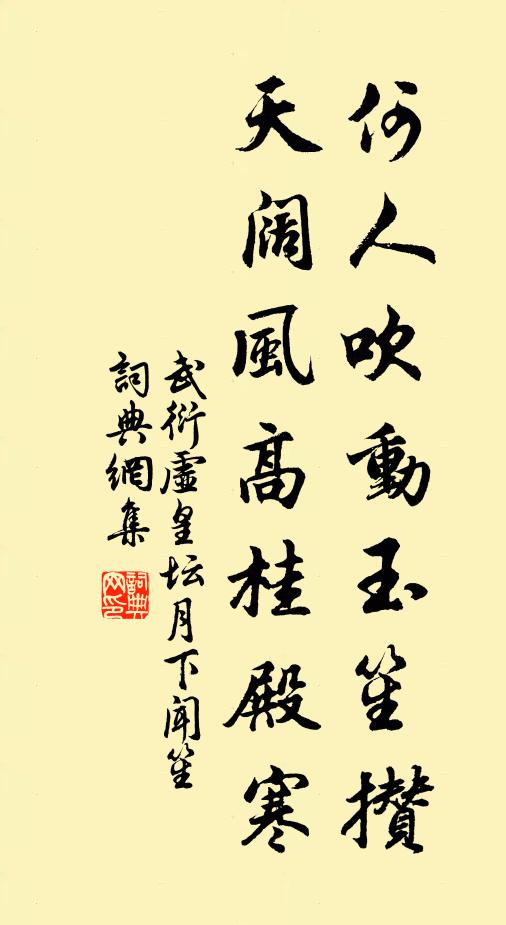 何人吹動玉笙攅
天阔風高桂殿寒
武衍虚皇坛月下闻笙
詞典網集
詞典网印